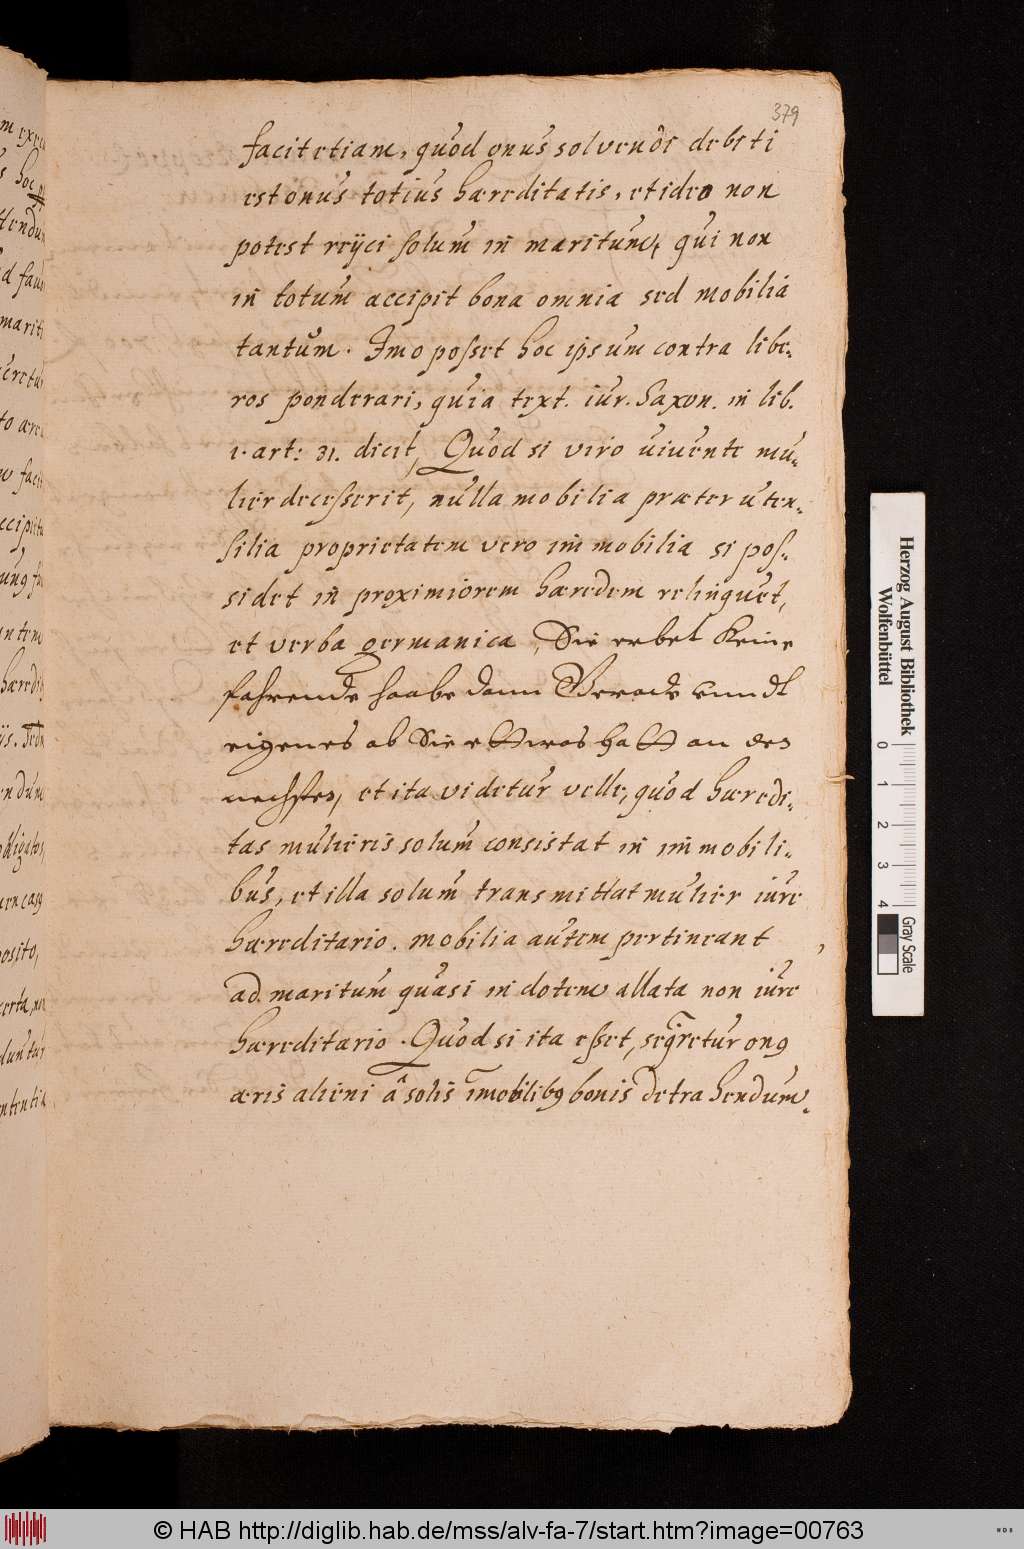 379
facit etiam, quod onus solvendi debiti
est onus totius hæreditatis, et ideo non
potest reijci solum in maritum, qui non
in totum accipit bona omnia sed mobilia
tantum. Imo posset hoc ipsum contra libe-
ros ponderari, quia text. iur. Saxon. in lib.
1. art: 31. dicit, Quod si viro uiuente mu-
lier decesserit, nulla mobilia præter uten-
silia proprietatem vero immobilia si pos-
sidet in proximiorem hæredem relinquet,
et verba germanica, Sie erbet keine
fahrende haabe dann Gerade vnndt
eigenes ob Sie ettwas hatt an den
nechsten, et ita videtur velle, quod hæredi-
tas mulieris solum consistat in immobili-
bus, et illa solum transmittat mulier iure
hæreditario. mobilia autem pertineant
ad maritum quasi in dotem allata non iure
hæreditario. Quod si ita esset, seq̃retur onq
æris alieni â solis im̃obilibq bonis detrahendum.
Herzog August Bibliothek
Wolfenbüttel
0 1 2 3 4
Gray Scale
© HAB http://diglib.hab.de/mss/alv-fa-7/start.htm?image=00763